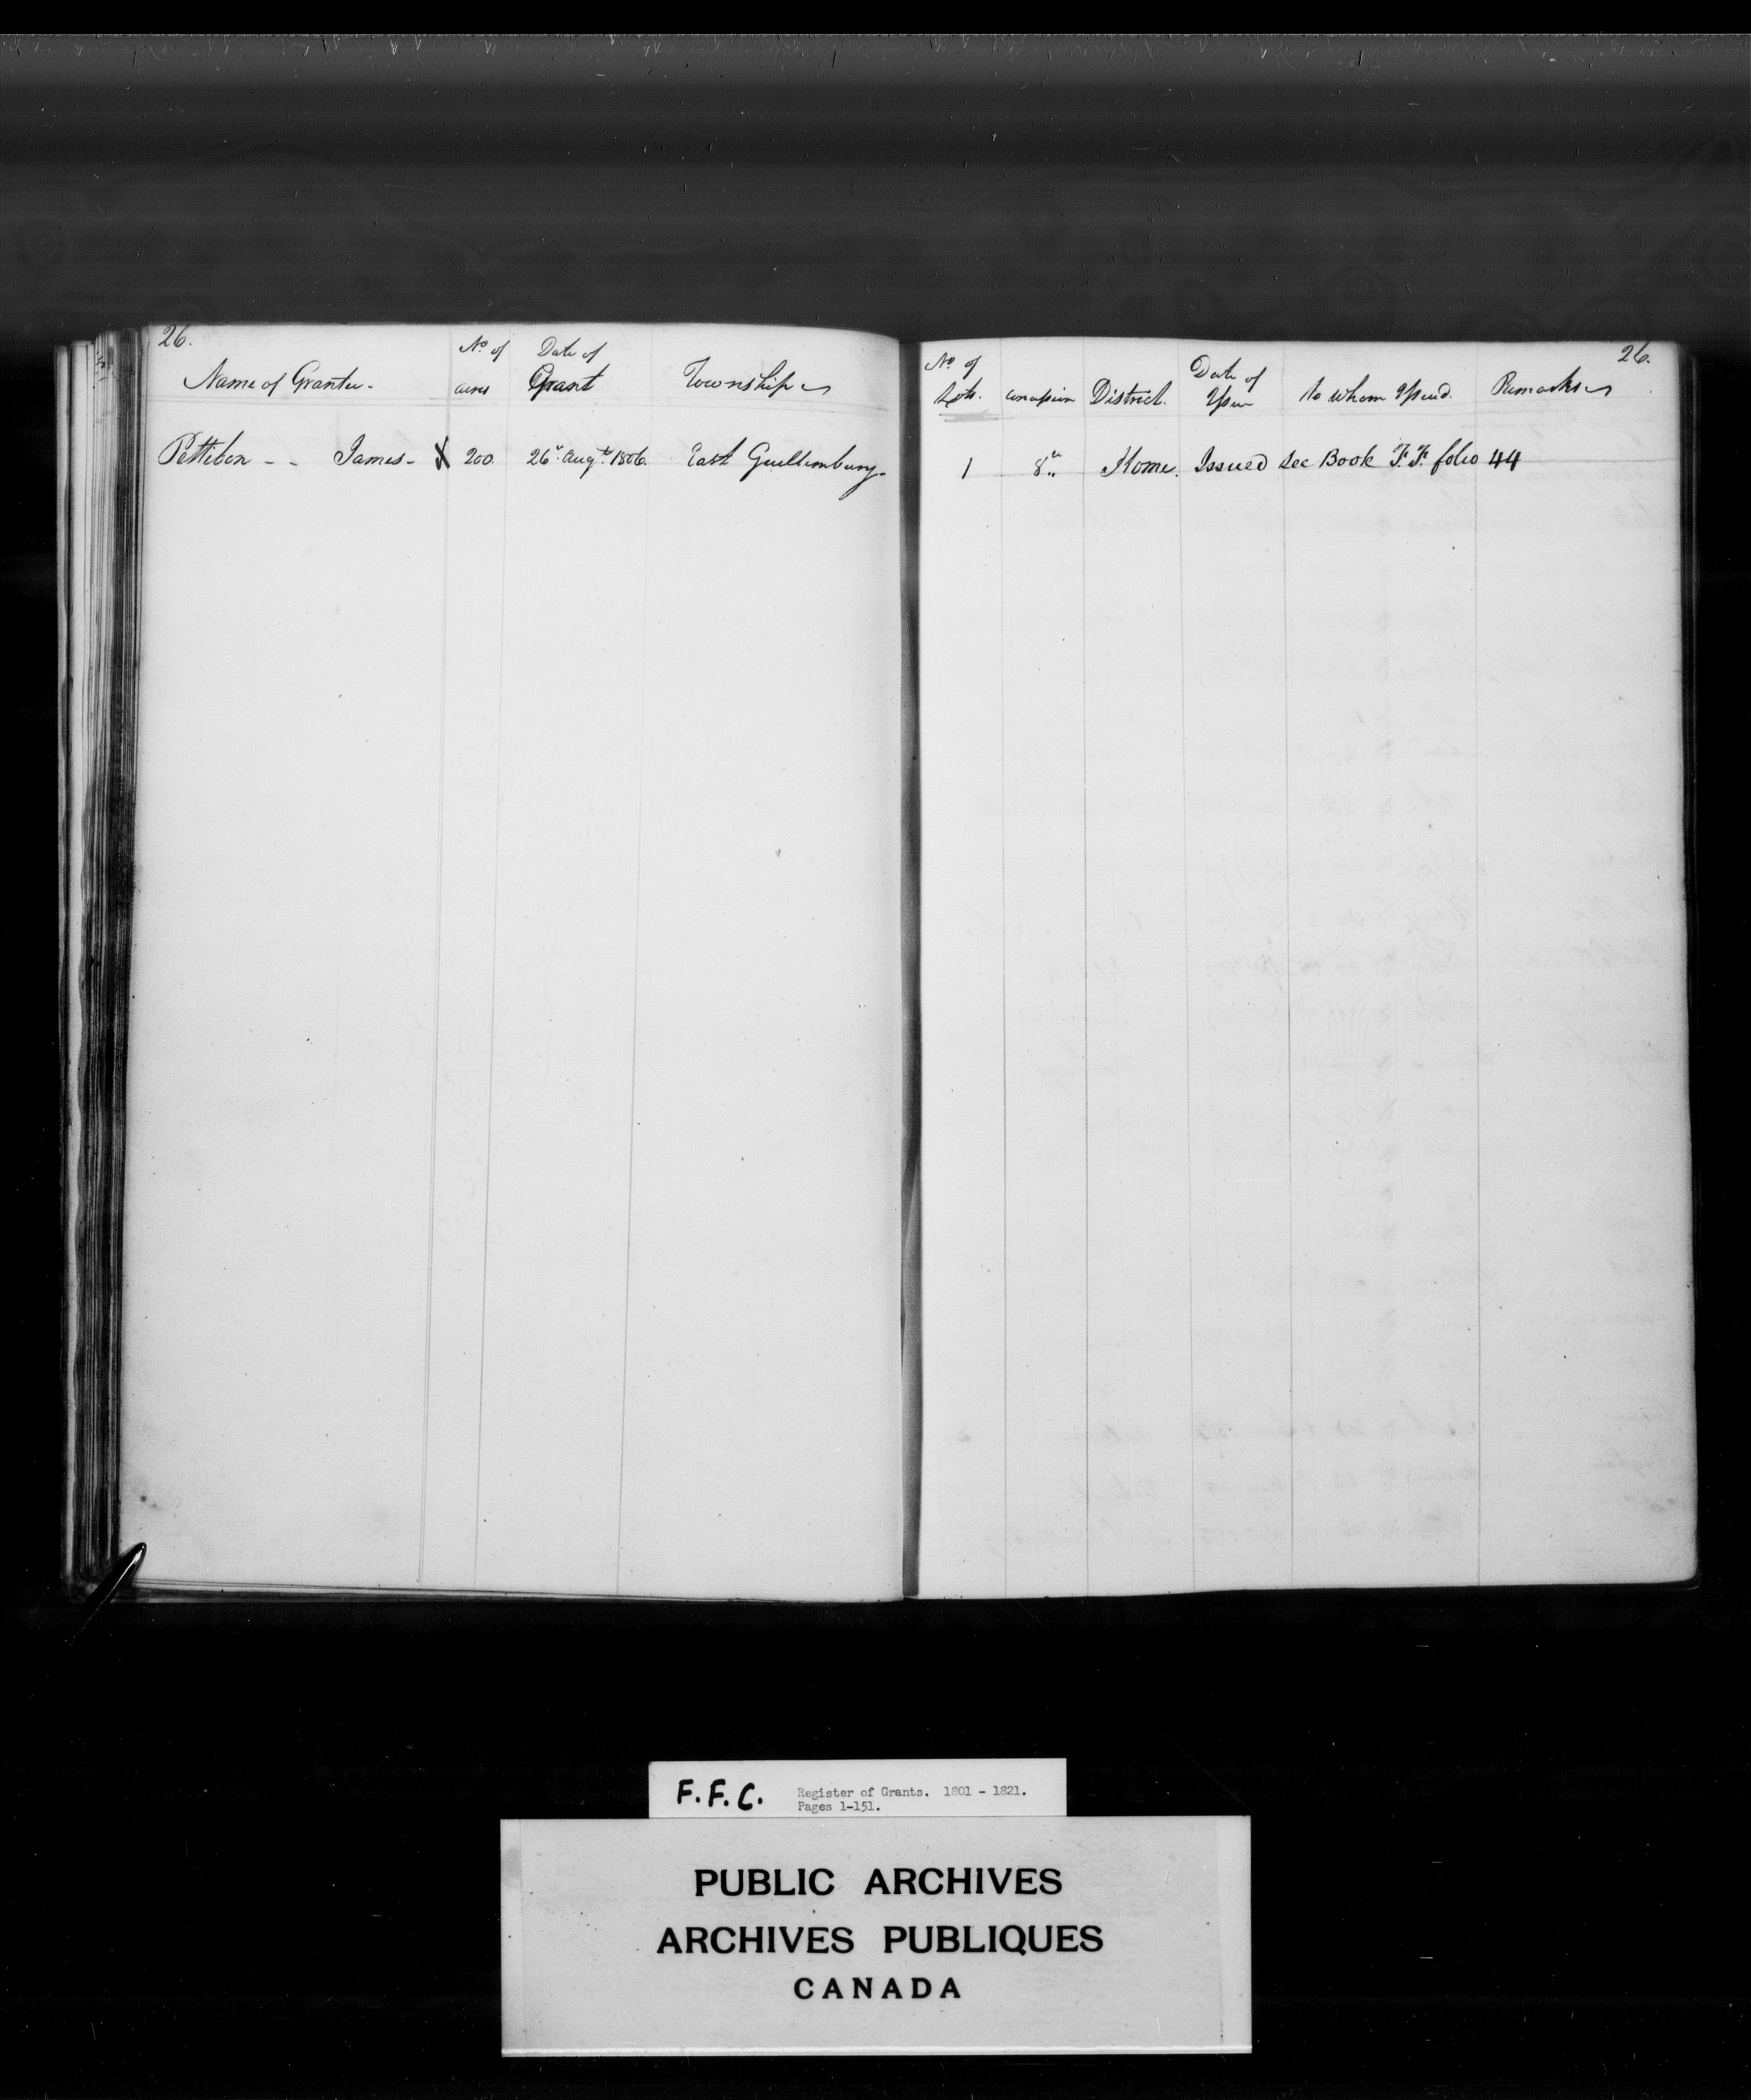 26.
Name of Grantee - No. of acres Date of Grant Townships
Pettibon - - James - X 200 26th Augt. 1806. East Guillimbury -
26.
No. of Lots. Concession District. Date of Issue to whom Issued. Remarks
1 8th Home. Issued See Book F.F. folio 44
F.F.C. Register of Grants. 1801 - 1821.
Pages 1-151.
PUBLIC ARCHIVES
ARCHIVES PUBLIQUES
CANADA